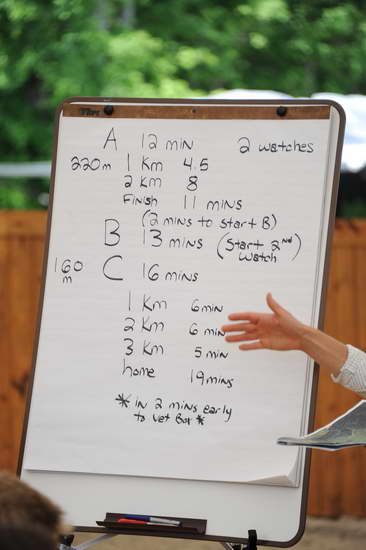 A 12 min 2 watches
220m 1 Km 4.5
2 Km 8
Finish 11 mins
(2 mins to start B)
B 13 mins (Start 2nd watch)
160 m C 16 mins
1 Km 6 min
2 Km 6 min
3 Km 5 min
home 19 mins
* in 2 mins early
to Vet Box *